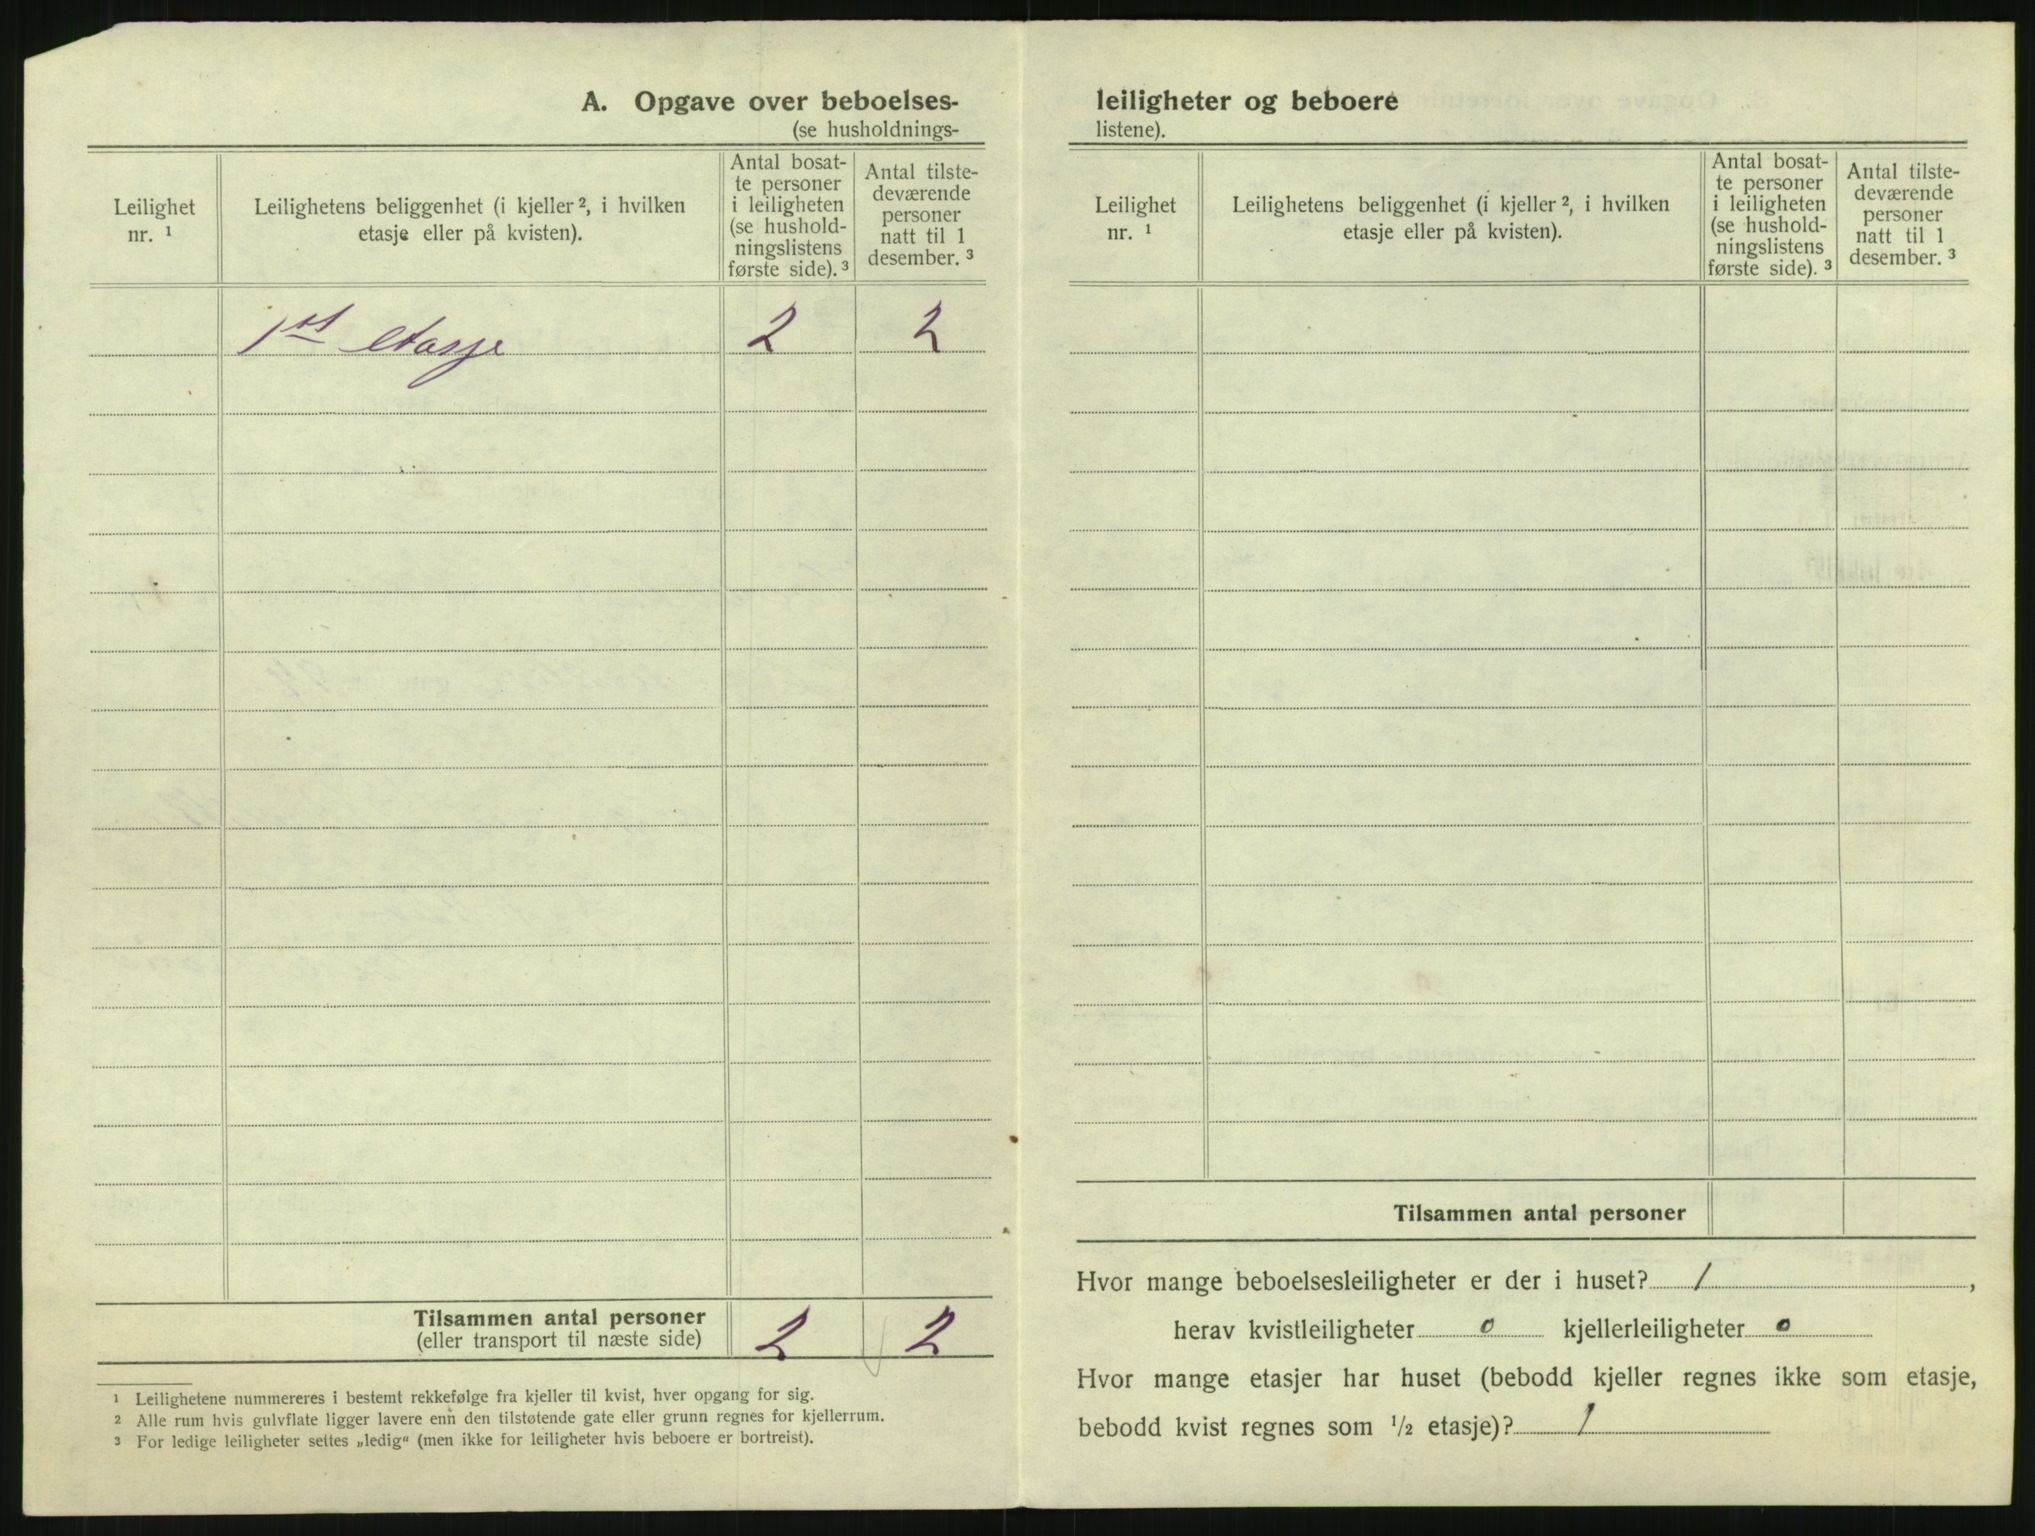 A. Opgave over beboelses-
(se husholdnings-
Leilighet
nr. ¹
Leilighetens beliggenhet (i kjeller ², i hvilken
etasje eller på kvisten).
Antal bosat-
te personer
i leiligheten
(se hushold-
ningslistens
første side). ³
Antal tilste-
deværende
personer
natt til 1
desember. ³
1st etasje 2 2
Tilsammen antal personer 2 2
(eller transport til næste side)
¹ Leilighetene nummereres i bestemt rekkefølge fra kjeller til kvist, hver opgang for sig.
² Alle rum hvis gulvflate ligger lavere enn den tilstøtende gate eller grunn regnes for kjellerrum.
³ For ledige leiligheter settes „ledig“ (men ikke for leiligheter hvis beboere er bortreist).
leiligheter og beboere
listene).
Leilighet
nr. ¹
Leilighetens beliggenhet (i kjeller ², i hvilken
etasje eller på kvisten).
Antal bosat-
te personer
i leiligheten
(se hushold-
ningslistens
første side). ³
Antal tilste-
deværende
personer
natt til 1
desember. ³
Tilsammen antal personer
Hvor mange beboelsesleiligheter er der i huset? 1,
herav kvistleiligheter 0 kjellerleiligheter 0
Hvor mange etasjer har huset (bebodd kjeller regnes ikke som etasje,
bebodd kvist regnes som ½ etasje)? 1